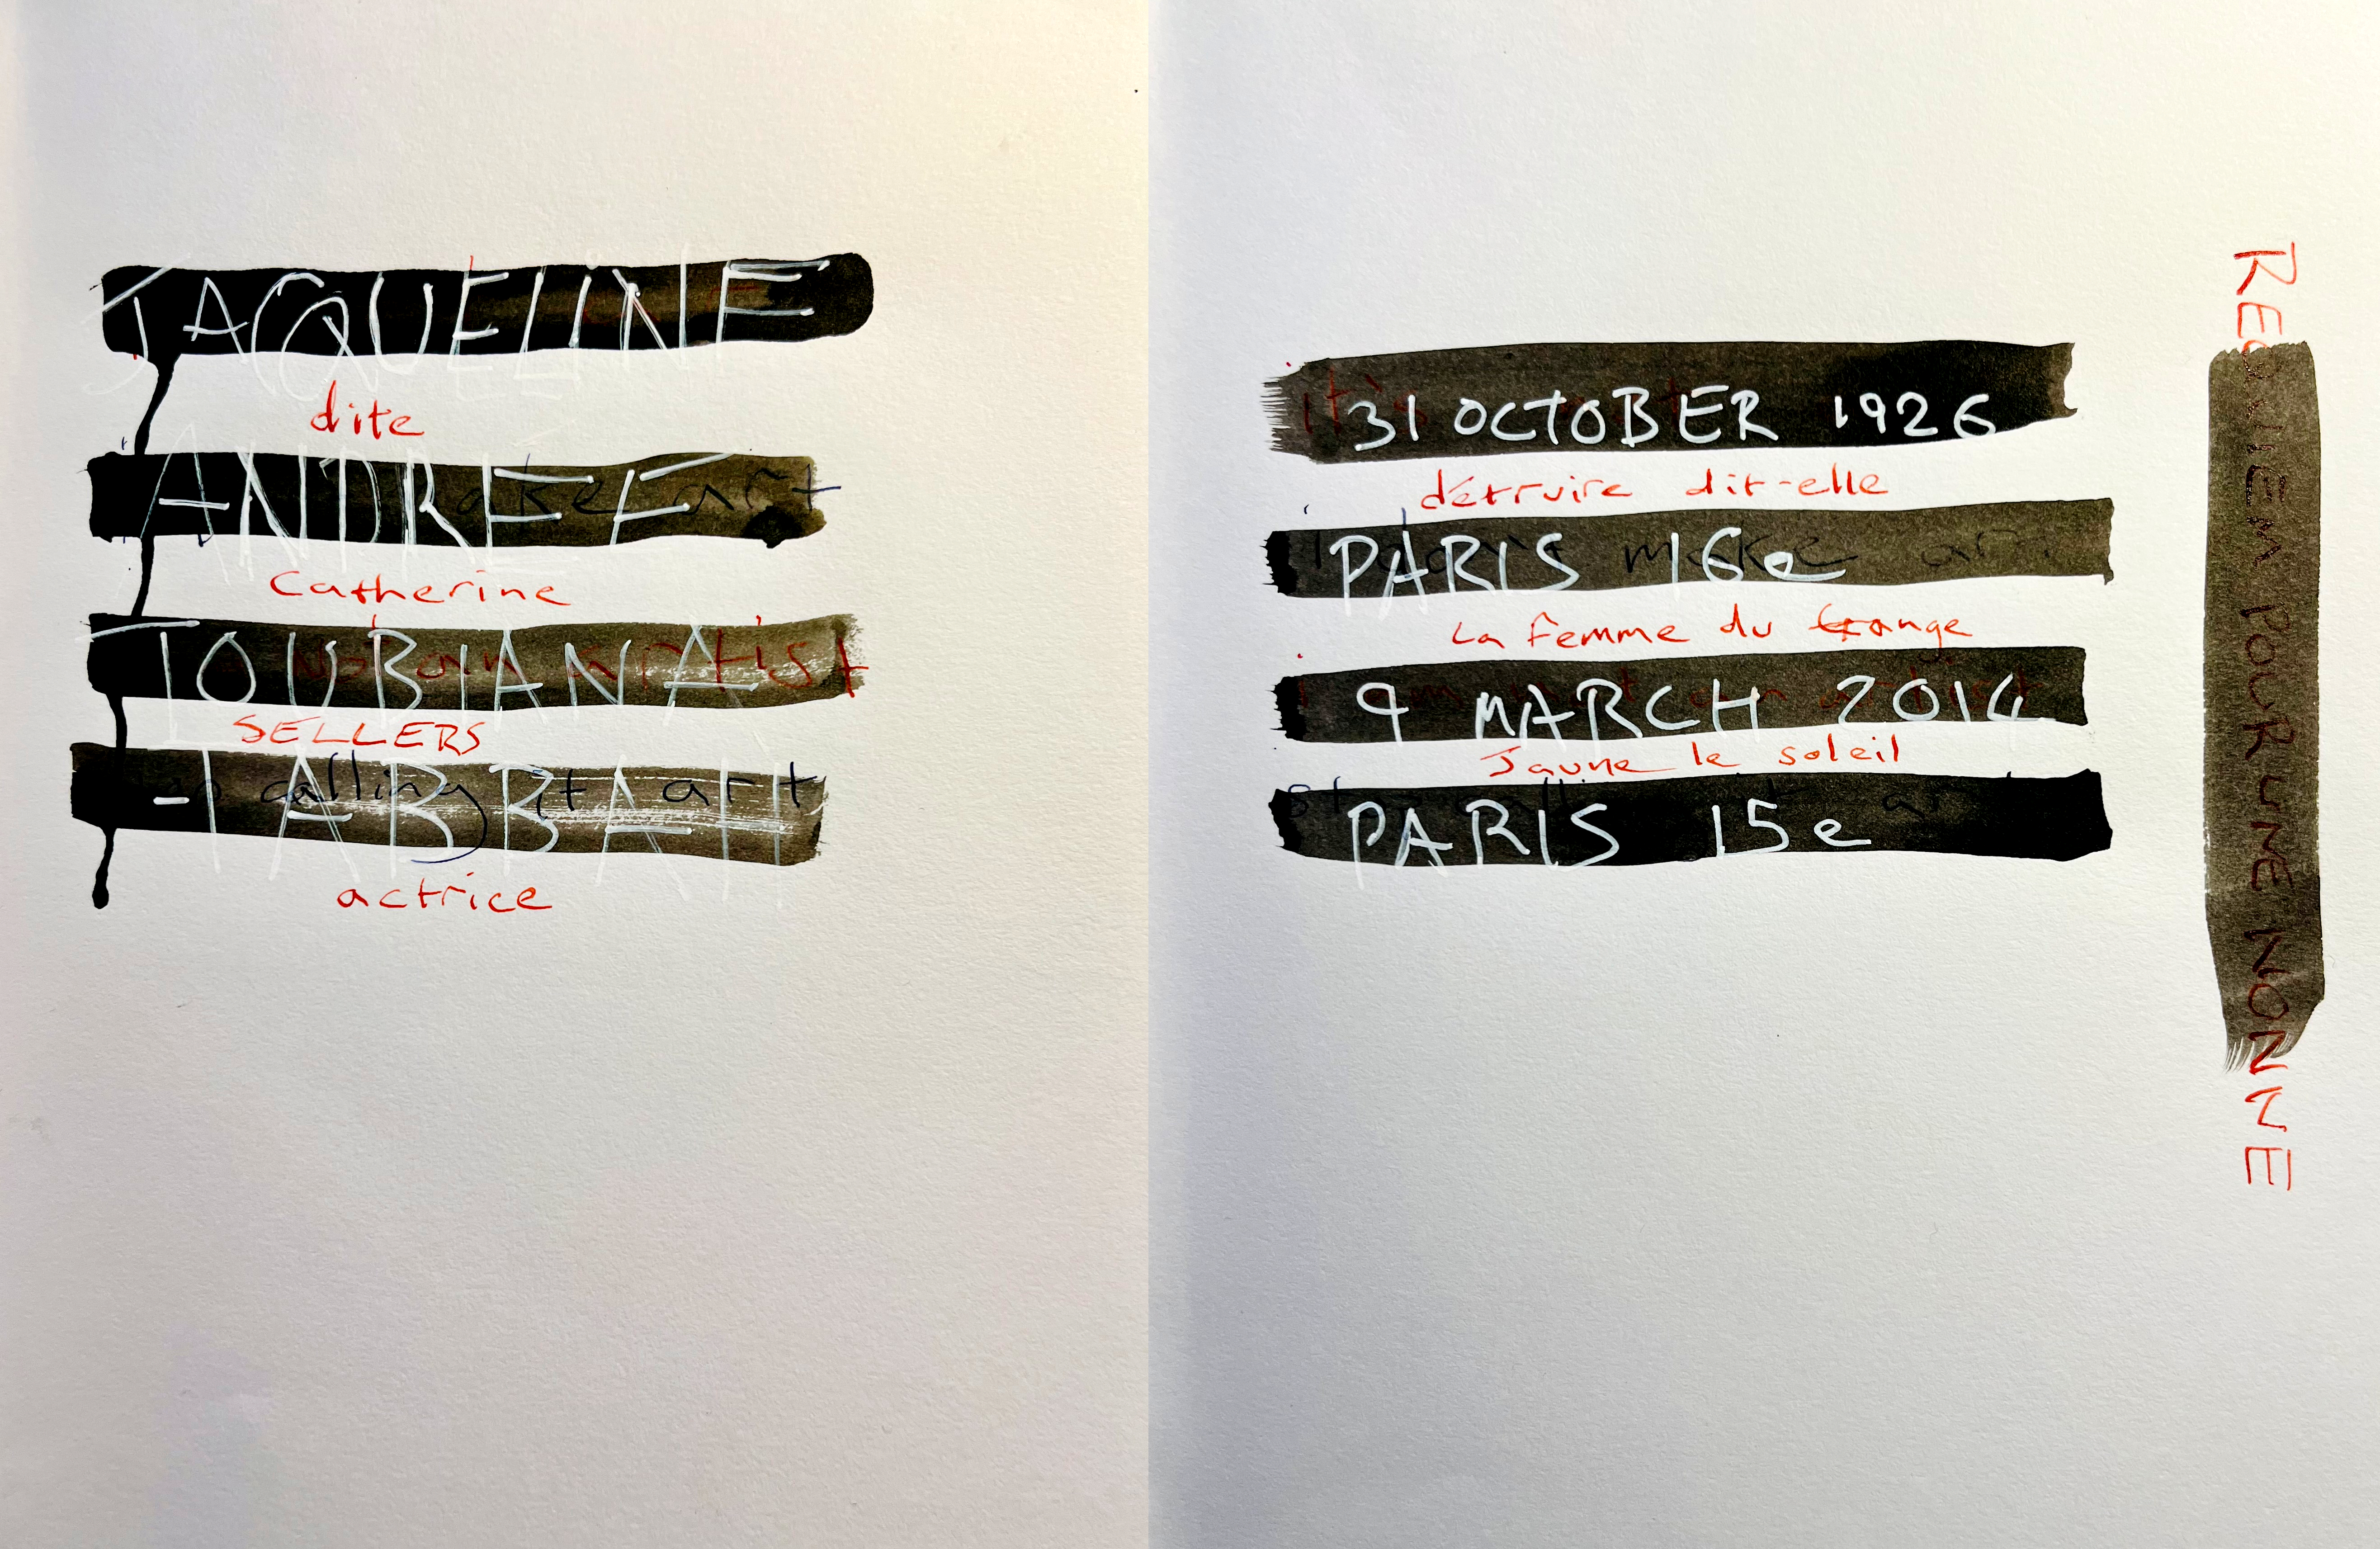 JACQUELINE
dite
ANDREE
ake art
Catherine
TOUBIANA
artist
SELLERS
-TABBAH
calling it art
actrice
it's
31 OCTOBER 1926
détruire dit-elle
PARIS 16e
make art
La Femme du Gange
9 MARCH 2014
Jaune le soleil
PARIS 15e
REQUIEM POUR UNE NONNE